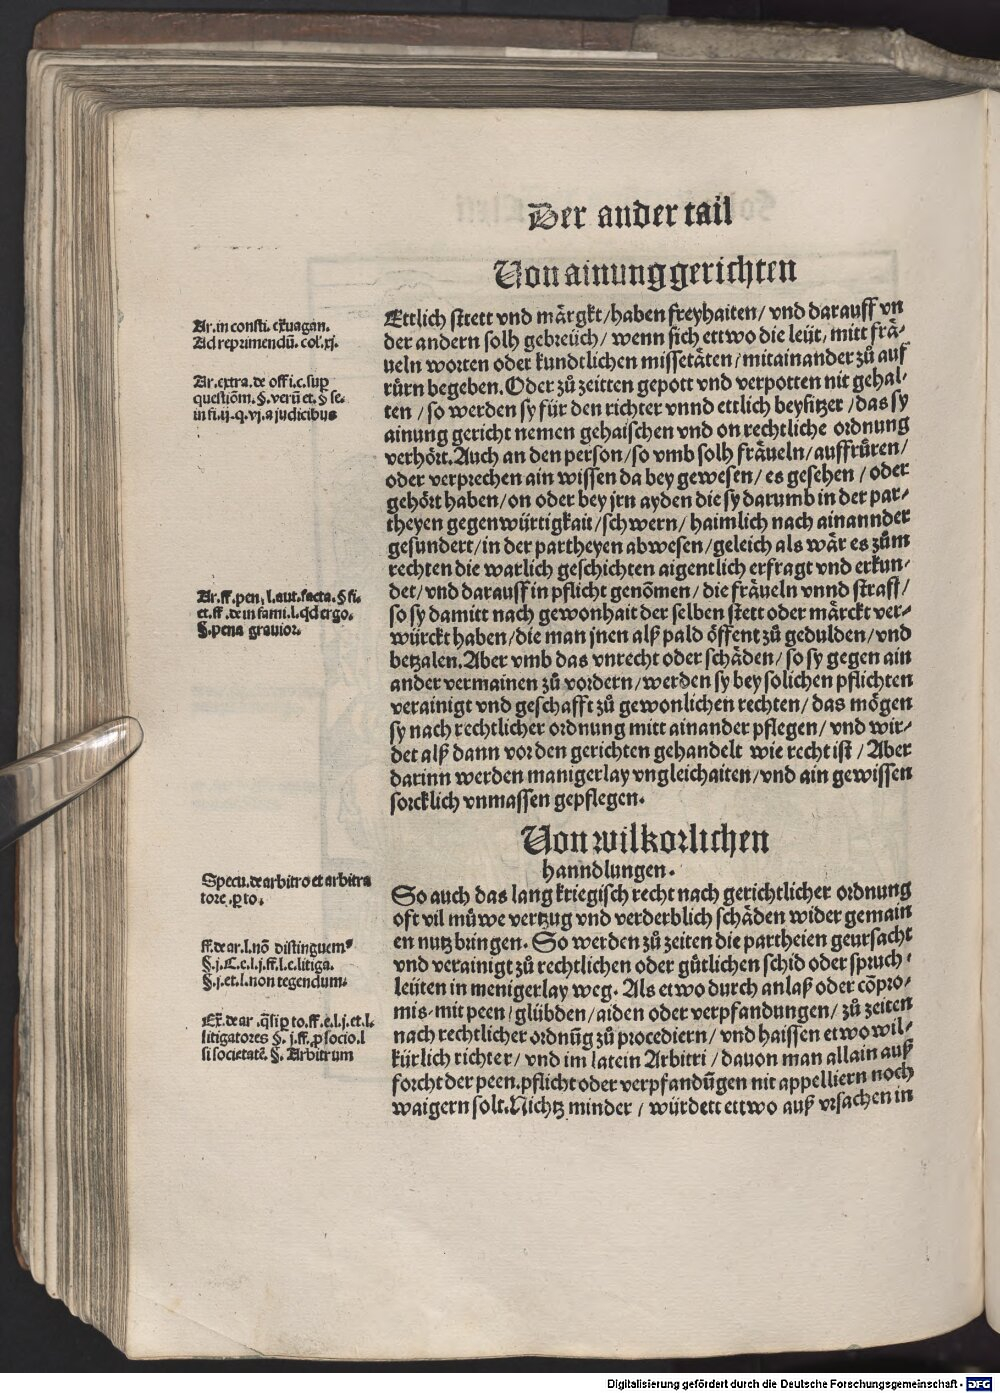 Der ander tail
Von ainung gerichten
Ar. in consti. exuagan.
Ad reprimendū. col. xj.
Ar. extra. de offi. c. sup
questiōm. §. verū et. § se-
in fi. ij. q. vj. a judicibus
Ar. ff. pen. l. aut. facta. § fi.
et. ff. de in fami. l. qd ergo.
§. pena grauior.
Ettlich stett vnd märgkt / haben freyhaiten / vnd darauff vn
der andern solh gebreüch / wenn sich ettwo die leüt, mitt frä-
ueln worten oder kundtlichen missetäten / mitainander zů auf
rürn begeben. Oder zů zeitten gepott vnd verpotten nit gehal-
ten / so werden sy für den richter vnnd ettlich beysitzer / das sy
ainung gericht nemen gehaischen vnd on rechtliche ordnung
verhört. Auch an den person / so vmb solh fräueln / auffrůren /
oder verprechen ain wissen da bey gewesen / es gesehen / oder
gehört haben / on oder bey jrn ayden die sy darumb in der par-
theyen gegenwürtigkait / schwern / haimlich nach ainannder
gesundert / in der partheyen abwesen / geleich als wär es zům
rechten die warlich geschichten aigentlich erfragt vnd erkun-
det / vnd darauff in pflicht genōmen / die fräueln vnnd straff /
so sy damitt nach gewonhait der selben stett oder märckt ver-
würckt haben / die man jnen alß pald öffent zů gedulden / vnd
betzalen. Aber vmb das vnrecht oder schäden / so sy gegen ain
ander vermainen zů vordern / werden sy bey solichen pflichten
verainigt vnd geschafft zů gewonlichen rechten / das mögen
sy nach rechtlicher ordnung mitt ainander pflegen / vnd wir-
det alß dann vor den gerichten gehandelt wie recht ist / Aber
darinn werden manigerlay vngleichaiten / vnd ain gewissen
sorcklich vnmassen gepflegen.
Von wilkorlichen
hanndlungen.
Specu. de arbitro et arbitra
tore. ꝑ to.
ff. de ar. l. nō distinguem⁹
§. j. C. e. l. j. ff. l. e. litiga.
§. j. et. l. non tegendum.
Ex̄. de ar. q̄si ꝑ to. ff. e. l. j. et. l.
litigatores §. j. ff. ꝓ socio. l
si societatē. §. Arbitrum
So auch das lang kriegisch recht nach gerichtlicher ordnung
oft vil müwe vertzug vnd verderblich schäden wider gemain
en nutz bringen. So werden zů zeiten die partheien geursacht
vnd verainigt zů rechtlichen oder gütlichen schid oder spruch-
leüten in menigerlay weg. Als etwo durch anlaß oder cōpro-
mis-mit peen / glübden / aiden oder verpfandungen / zů zeiten
nach rechtlicher ordnūg zů procediern / vnd haissen etwo wil-
kürlich richter / vnd im latein Arbitri / dauon man allain auß
forcht der peen. pflicht oder verpfandūgen nit appelliern noch
waigern solt. Nichtz minder / würdett ettwo auß vrsachen in
Digitalisierung gefördert durch die Deutsche Forschungsgemeinschaft - DFG